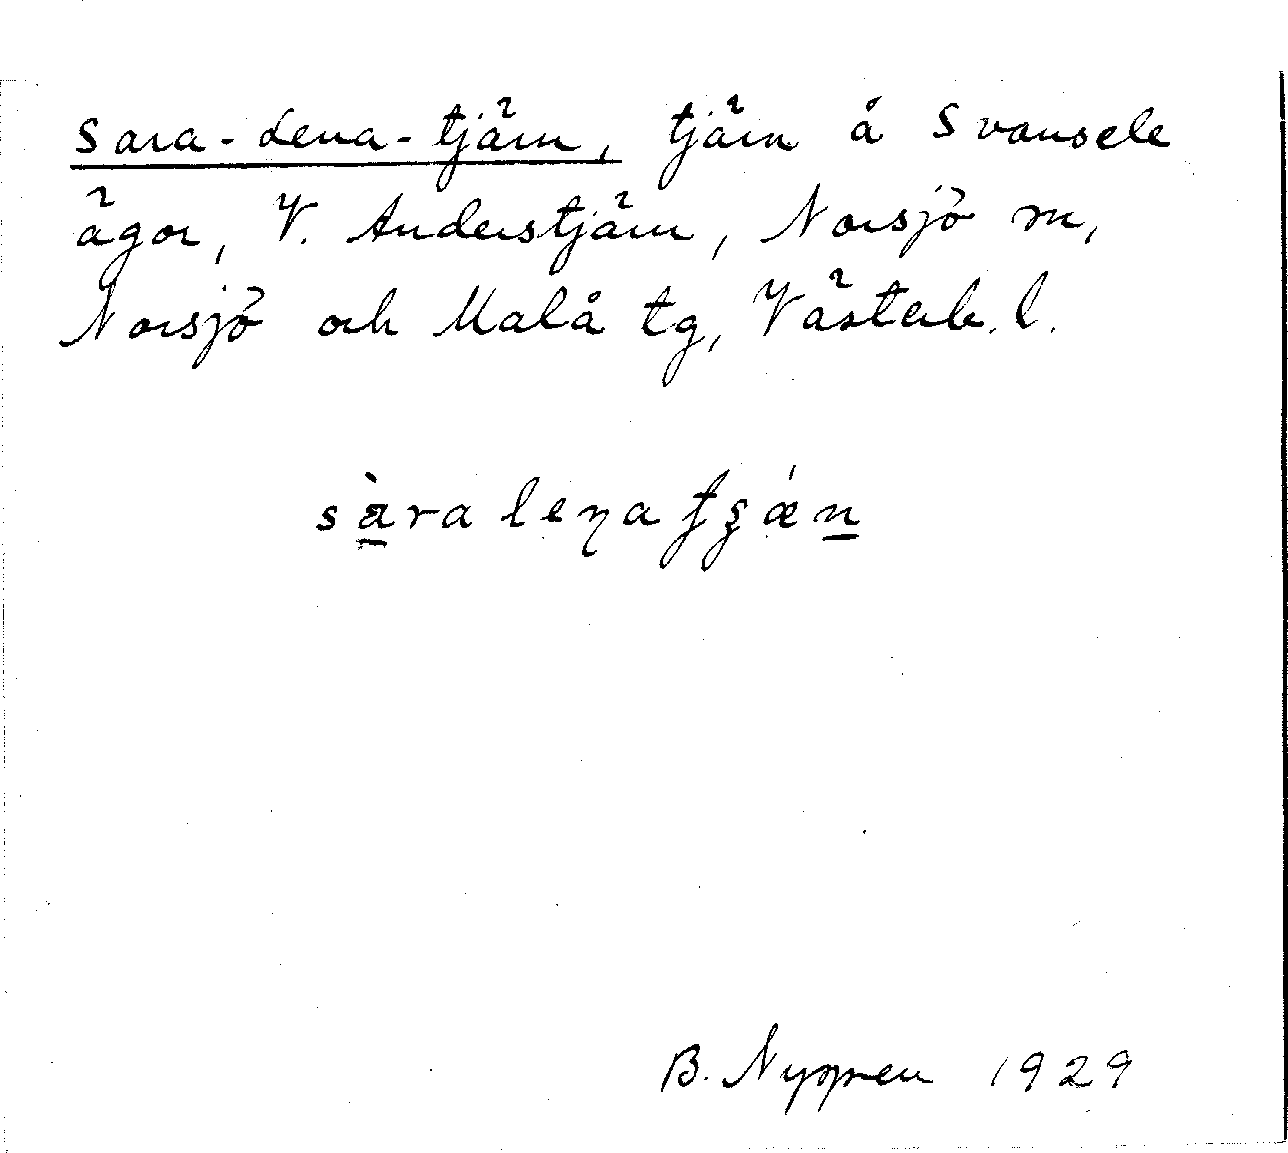 Sara-Lena-tjärn, tjärn å Svansele
ägor, V. Anderstjärn, Norsjö sn,
Norsjö och Malå tg, Västerb. l.
B. Nygren 1929